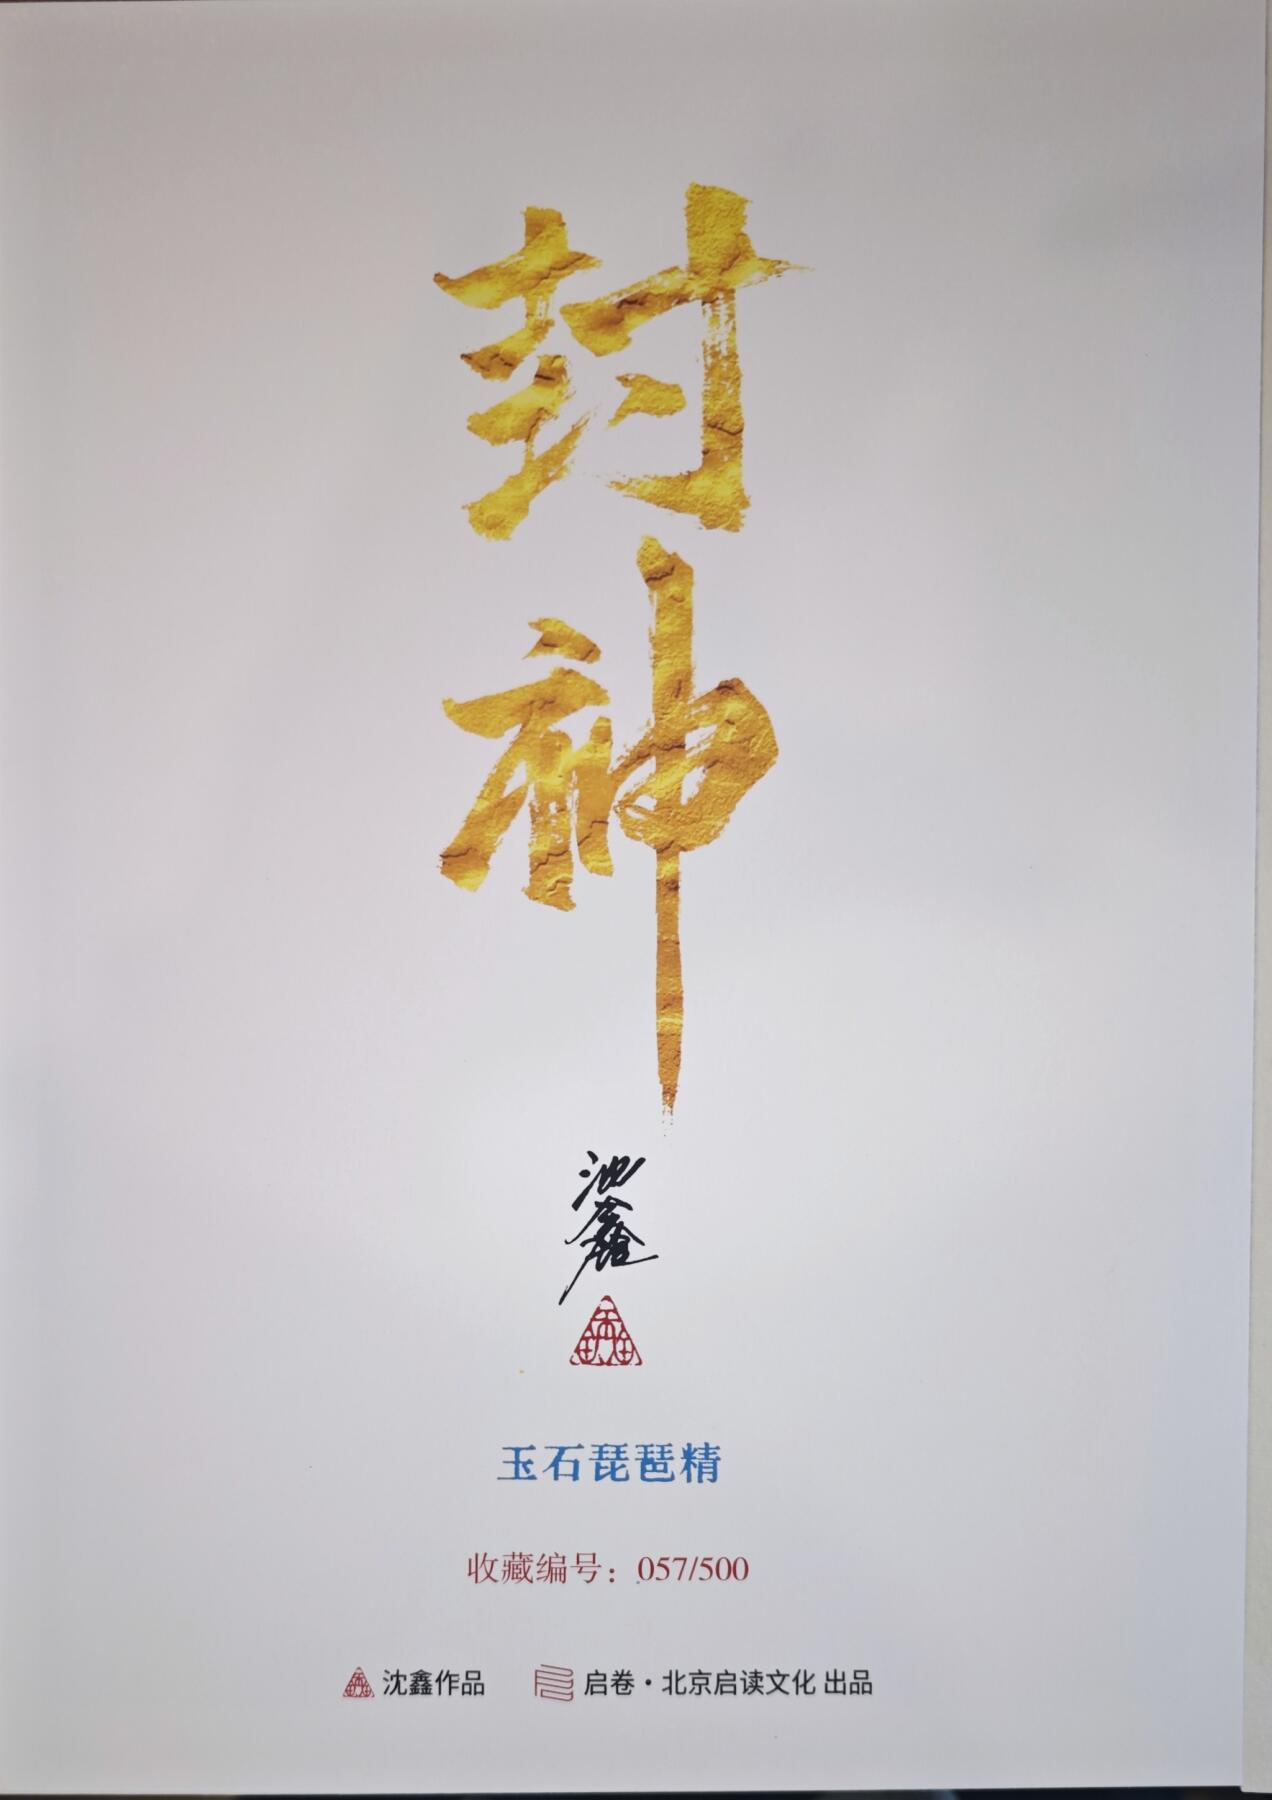 封
神
沈鑫
玉石琵琶精
收藏编号：057/500
沈鑫作品 启卷·北京启读文化 出品